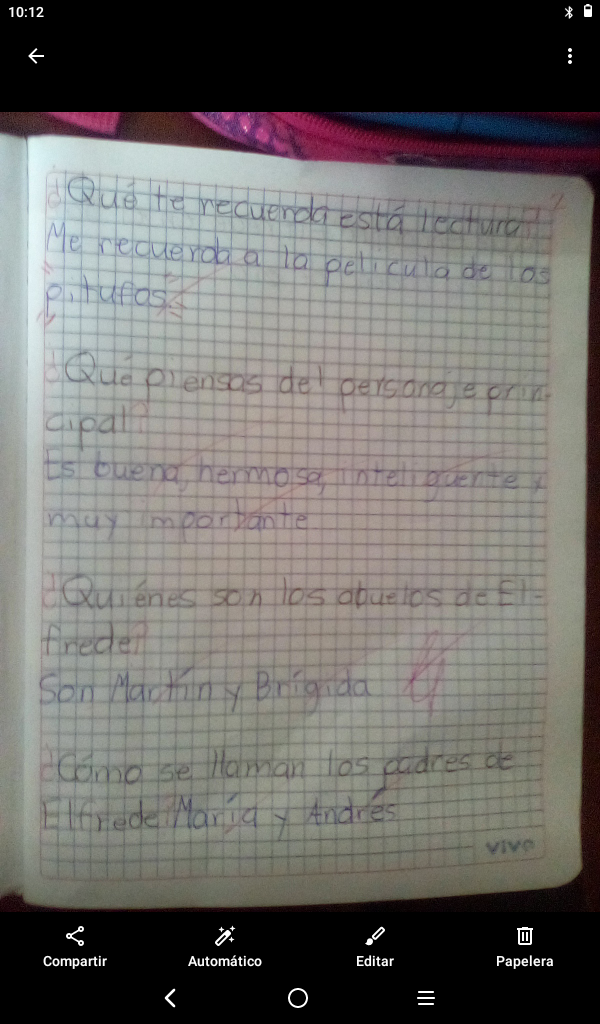 10:12
¿Qué te recuerda está lectura?
Me recuerda a la pelicula de los
"pitufos"
¿Qué piensas del personaje prin-
cipal?
Es buena, hermosa, inteliguente y
muy importante
¿Quiénes son los abuelos de El-
frede?
Son Martín y Brígida
¿Cómo se llaman los padres de
Elfrede? María y Andrés
vivo
Compartir
Automático
Editar
Papelera